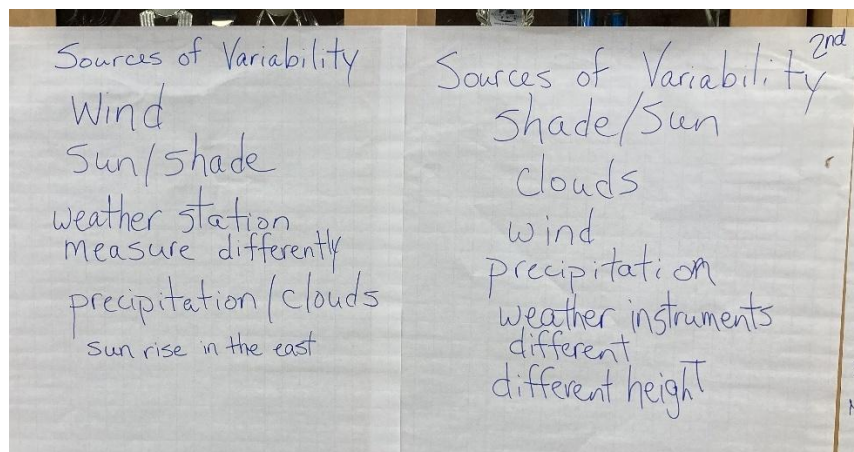 Sources of Variability
Wind
Sun/Shade
weather station
measure differently
precipitation/clouds
sun rise in the east
2nd
Sources of Variability
Shade/Sun
clouds
wind
precipitation
weather instruments
different
different height